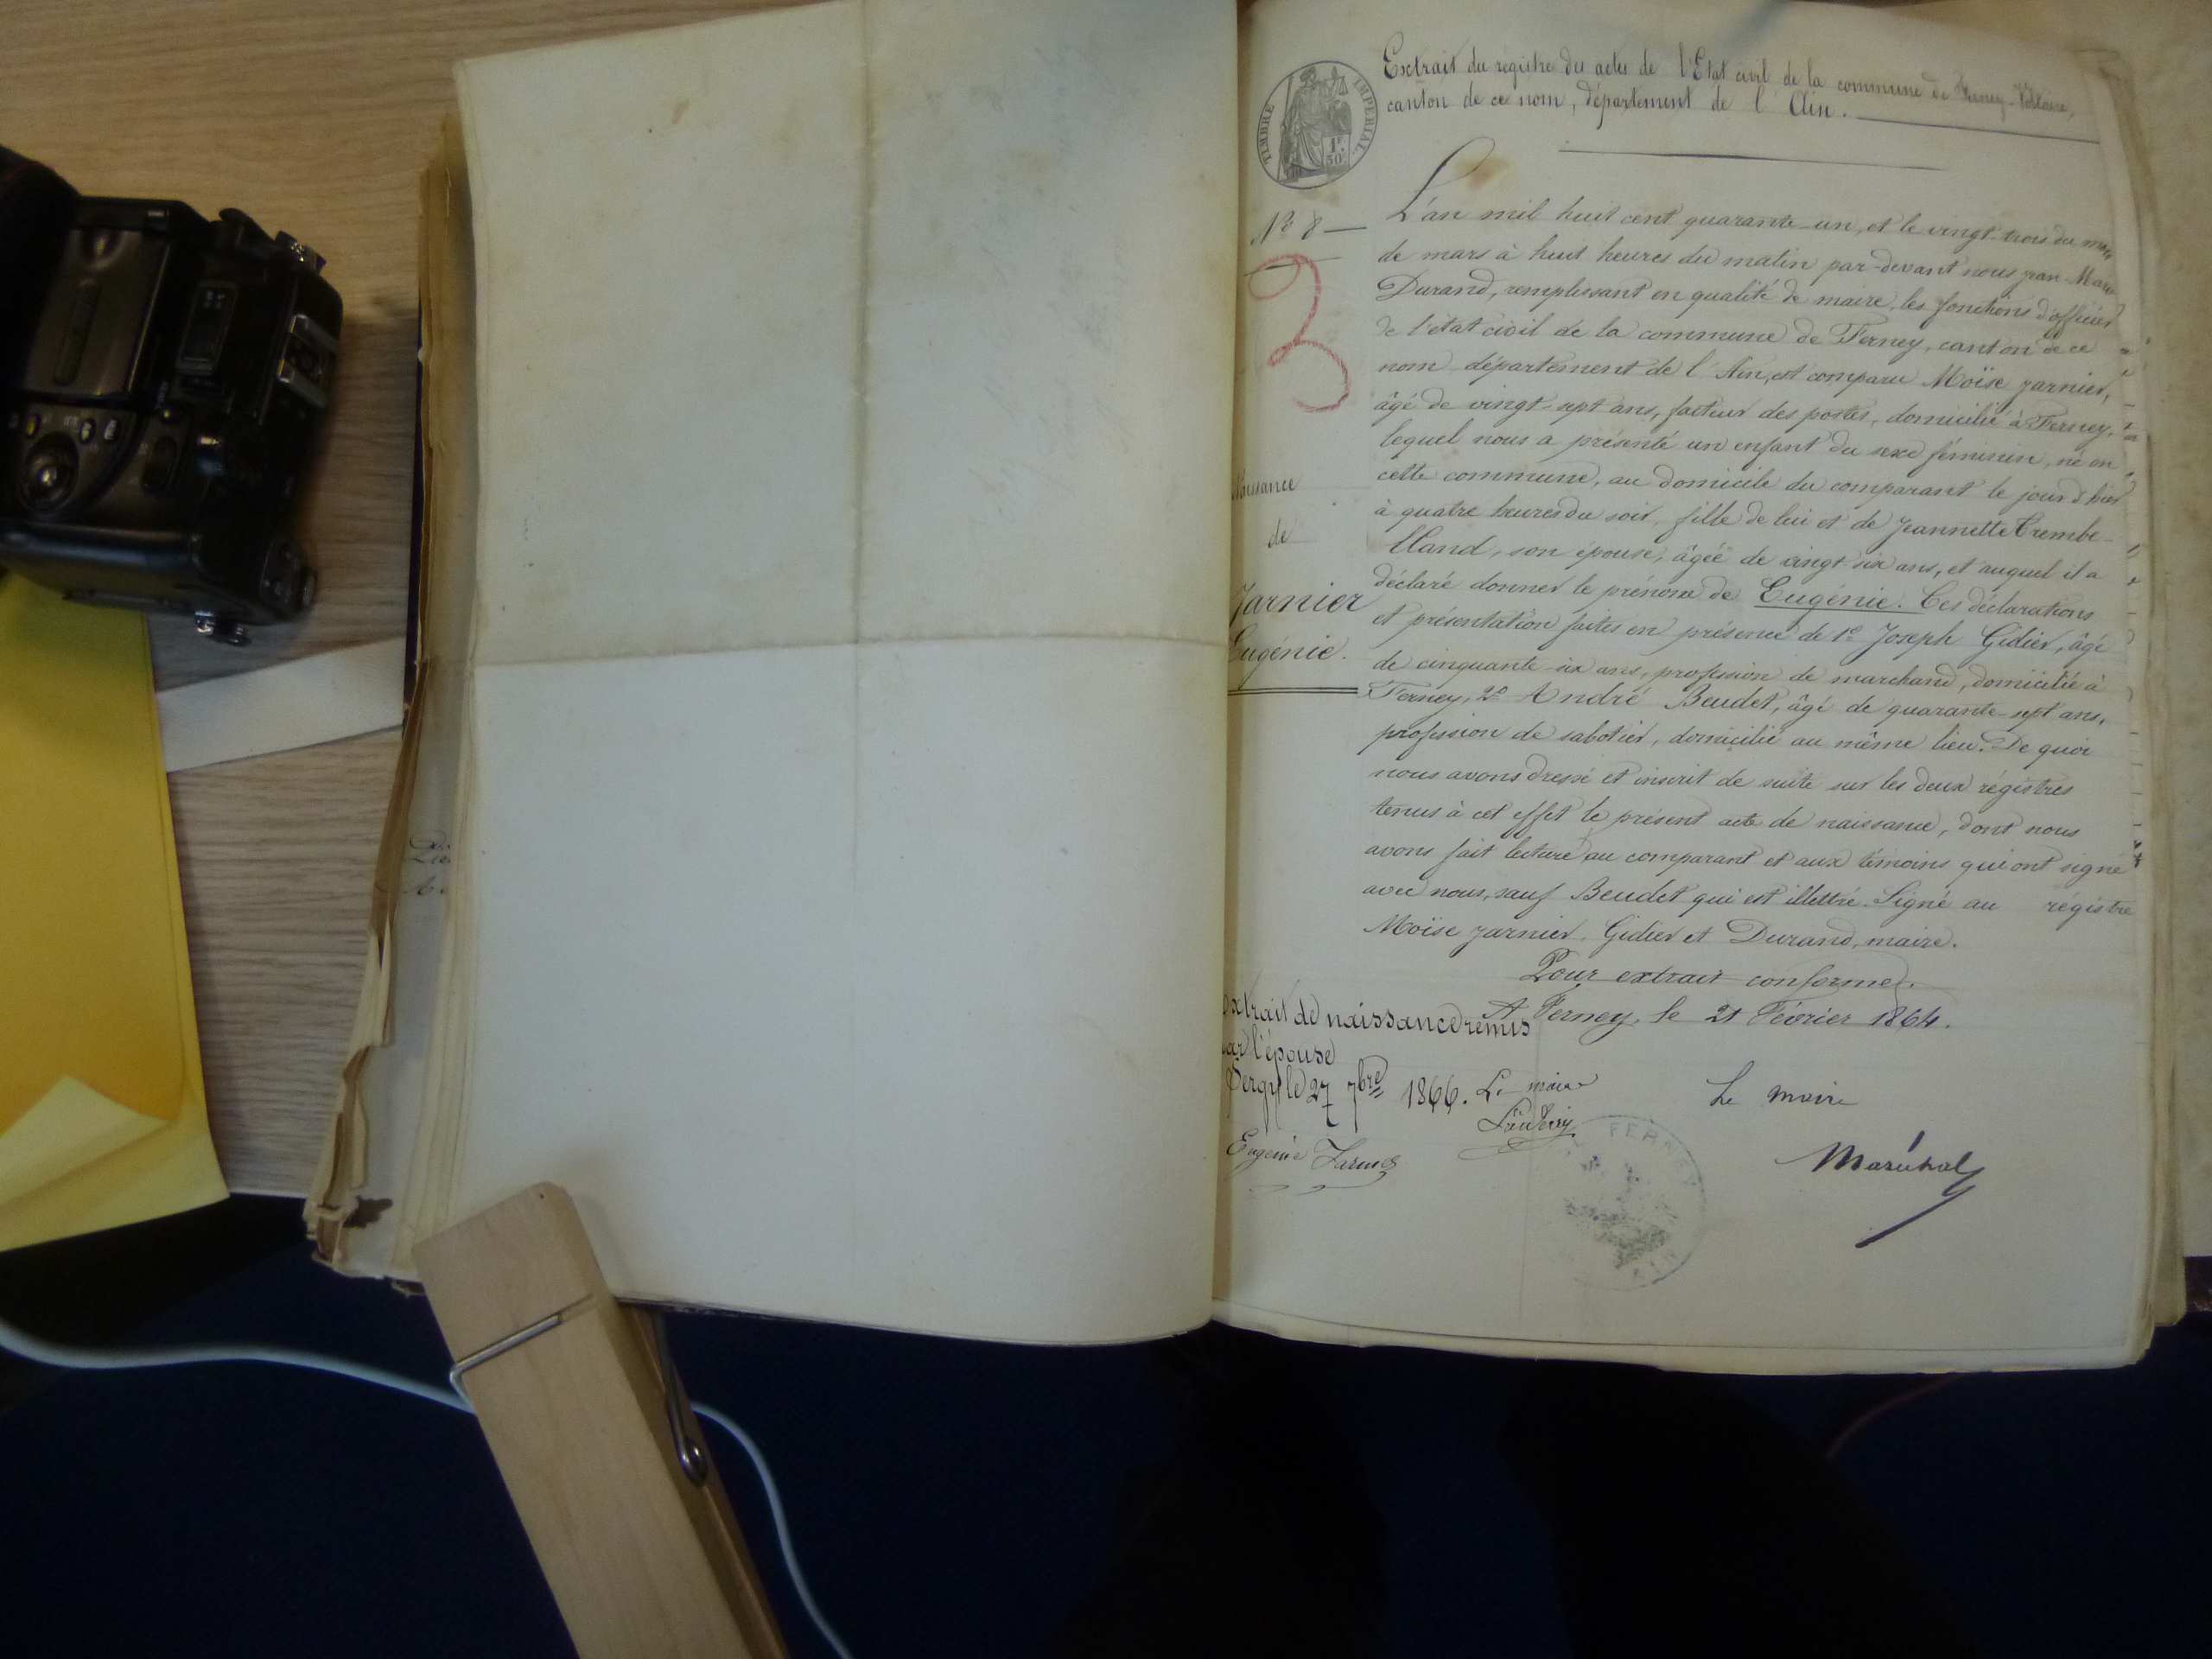 Extrait du registre des actes de l'Etat civil de la commune de Ferney-Voltaire,
canton de ce nom, département de l'Ain.
TIMBRE IMPERIAL
1F.
50c
Nº 8
3
L'an mil huit cent quarante-un, et le vingt-trois du mois
de mars à huit heures du matin par-devant nous Jean-Marc
Durand, remplissant en qualité de maire, les fonctions d'officier
de l'état civil de la commune de Ferney, canton de ce
nom département de l'Ain, est comparu Moïse Jarnier,
âgé de vingt-sept ans, facteur des postes, domicilié à Ferney,
lequel nous a présenté un enfant du sexe féminin, né en
cette commune, au domicile du comparant le jour d'hier
à quatre heures du soir, fille de lui et de Jeannette Trembe-
lland, son épouse, âgée de vingt-six ans, et auquel il a
déclaré donner le prénom de Eugénie. Ces déclarations
et présentation faites en présence de 1º Joseph Gidier, âgé
de cinquante-six ans, profession de marchand, domicilié à
Ferney, 2º André Beudet, âgé de quarante-sept ans,
profession de sabotier, domicilié au même lieu. De quoi
nous avons dressé et inscrit de suite sur les deux régistres
tenus à cet effet le présent acte de naissance, dont nous
avons fait lecture au comparant et aux témoins qui ont signé
avec nous, sauf Beudet qui est illettré. Signé au régistre
Moïse Jarnier, Gidier et Durand, maire.
Naissance
de
Jarnier
Eugénie.
Pour extrait conforme.
A Ferney, le 21 Février 1864.
Le maire
Maréchal
extrait de naissance remis
par l'épouse
le 27 7bre 1866. Le maire
Eugénie Jarnier
FERNEY
AIN